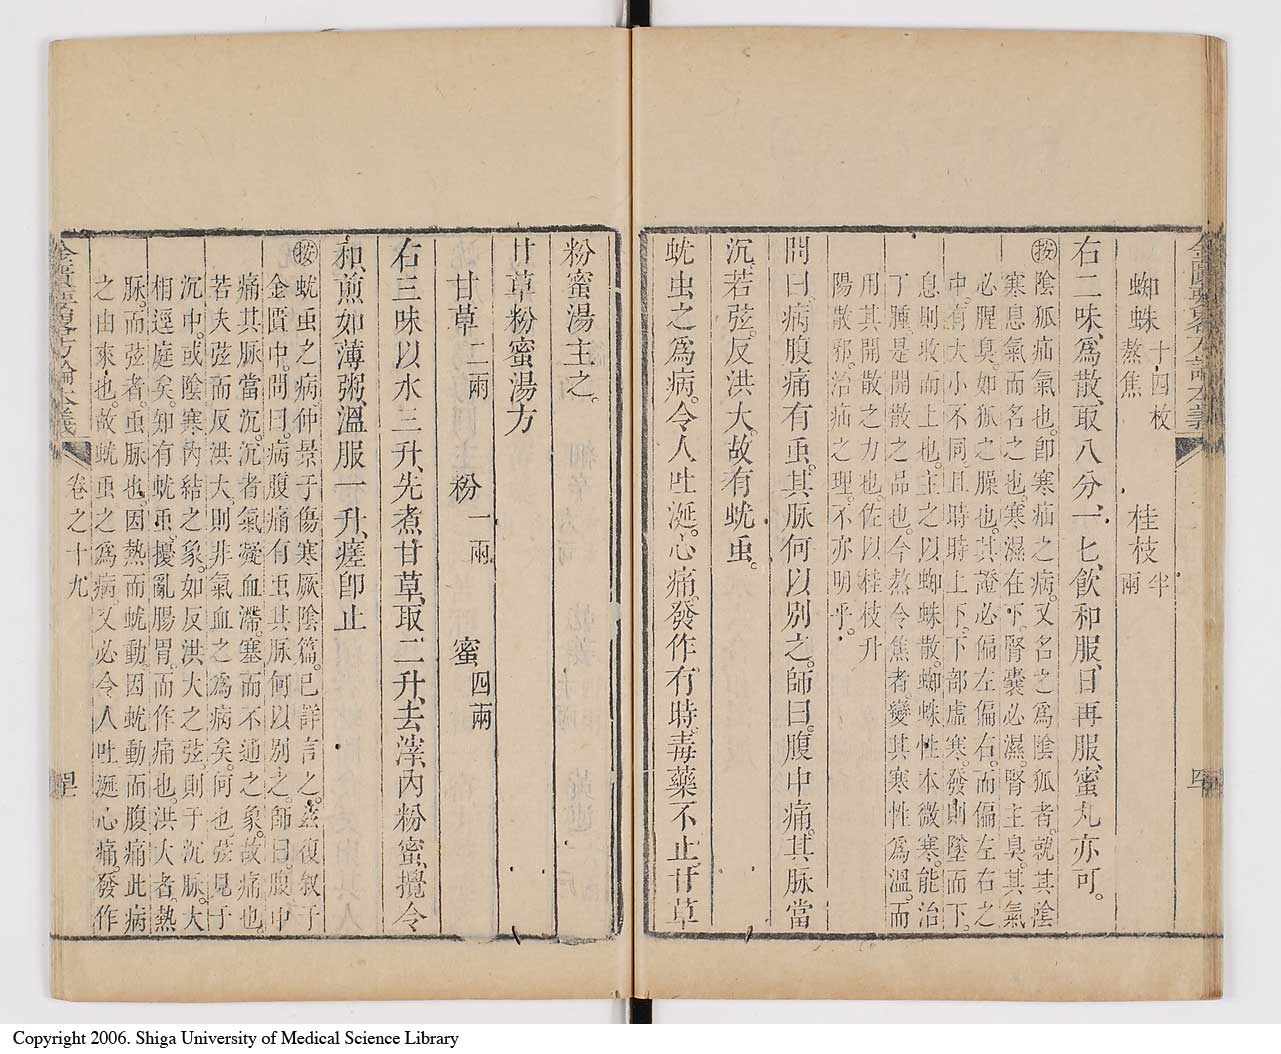 金匱要畧方論本義
蜘蛛十四枚熬焦　桂枝半兩
右二味爲散取八分一匕飲和服日再服蜜丸亦可。
按陰狐疝氣也。卽寒疝之病。又名之爲陰狐者。就其陰
寒息氣而名之也。寒濕在下。腎囊必濕。腎主臭。其氣
必腥臭。如狐之臊也。其證必偏左偏右。而偏左右之
中。有大小不同。且時時上下。下部虛寒。發則墜而下。
息則收而上也。主之以蜘蛛散。蜘蛛性本微寒。能治
丁腫。是開散之品也。今熬令焦者。變其寒性爲溫。而
用其開散之力也。佐以桂枝升
陽散邪。治疝之理。不亦明乎。
問曰。病腹痛有虫。其脉何以別之。師曰。腹中痛。其脉當
沉若弦。反洪大。故有蚘虫。
蚘虫之爲病。令人吐涎。心痛。發作有時。毒藥不止。甘草
粉蜜湯主之。
甘草粉蜜湯方
甘草二兩　粉一兩　蜜四兩
右三味以水三升、先煮甘草、取二升、去滓、內粉蜜、攪令
和、煎如薄粥、溫服一升、瘥卽止
按蚘虫之病。仲景于傷寒厥陰篇。已詳言之。玆復叙于
金匱中。問曰。病腹痛有虫。其脉何以別之。師曰。腹中
痛。其脉當沉。沉者氣凝血滯。塞而不通之象。故痛也。
若夫弦而反洪大。則非氣血之爲病矣。何也。弦見于
沉中。或陰寒內結之象。如反洪大之弦。則于沉脉。大
相逕庭矣。知有蚘虫。擾亂腸胃。而作痛也。洪大者。熱
脉。而弦者。虫脉也。因熱而蚘動。因蚘動而腹痛。此病
之由來也。故蚘虫之爲病。又必令人吐涎心痛。發作
金匱要畧方論本義
卷之十九